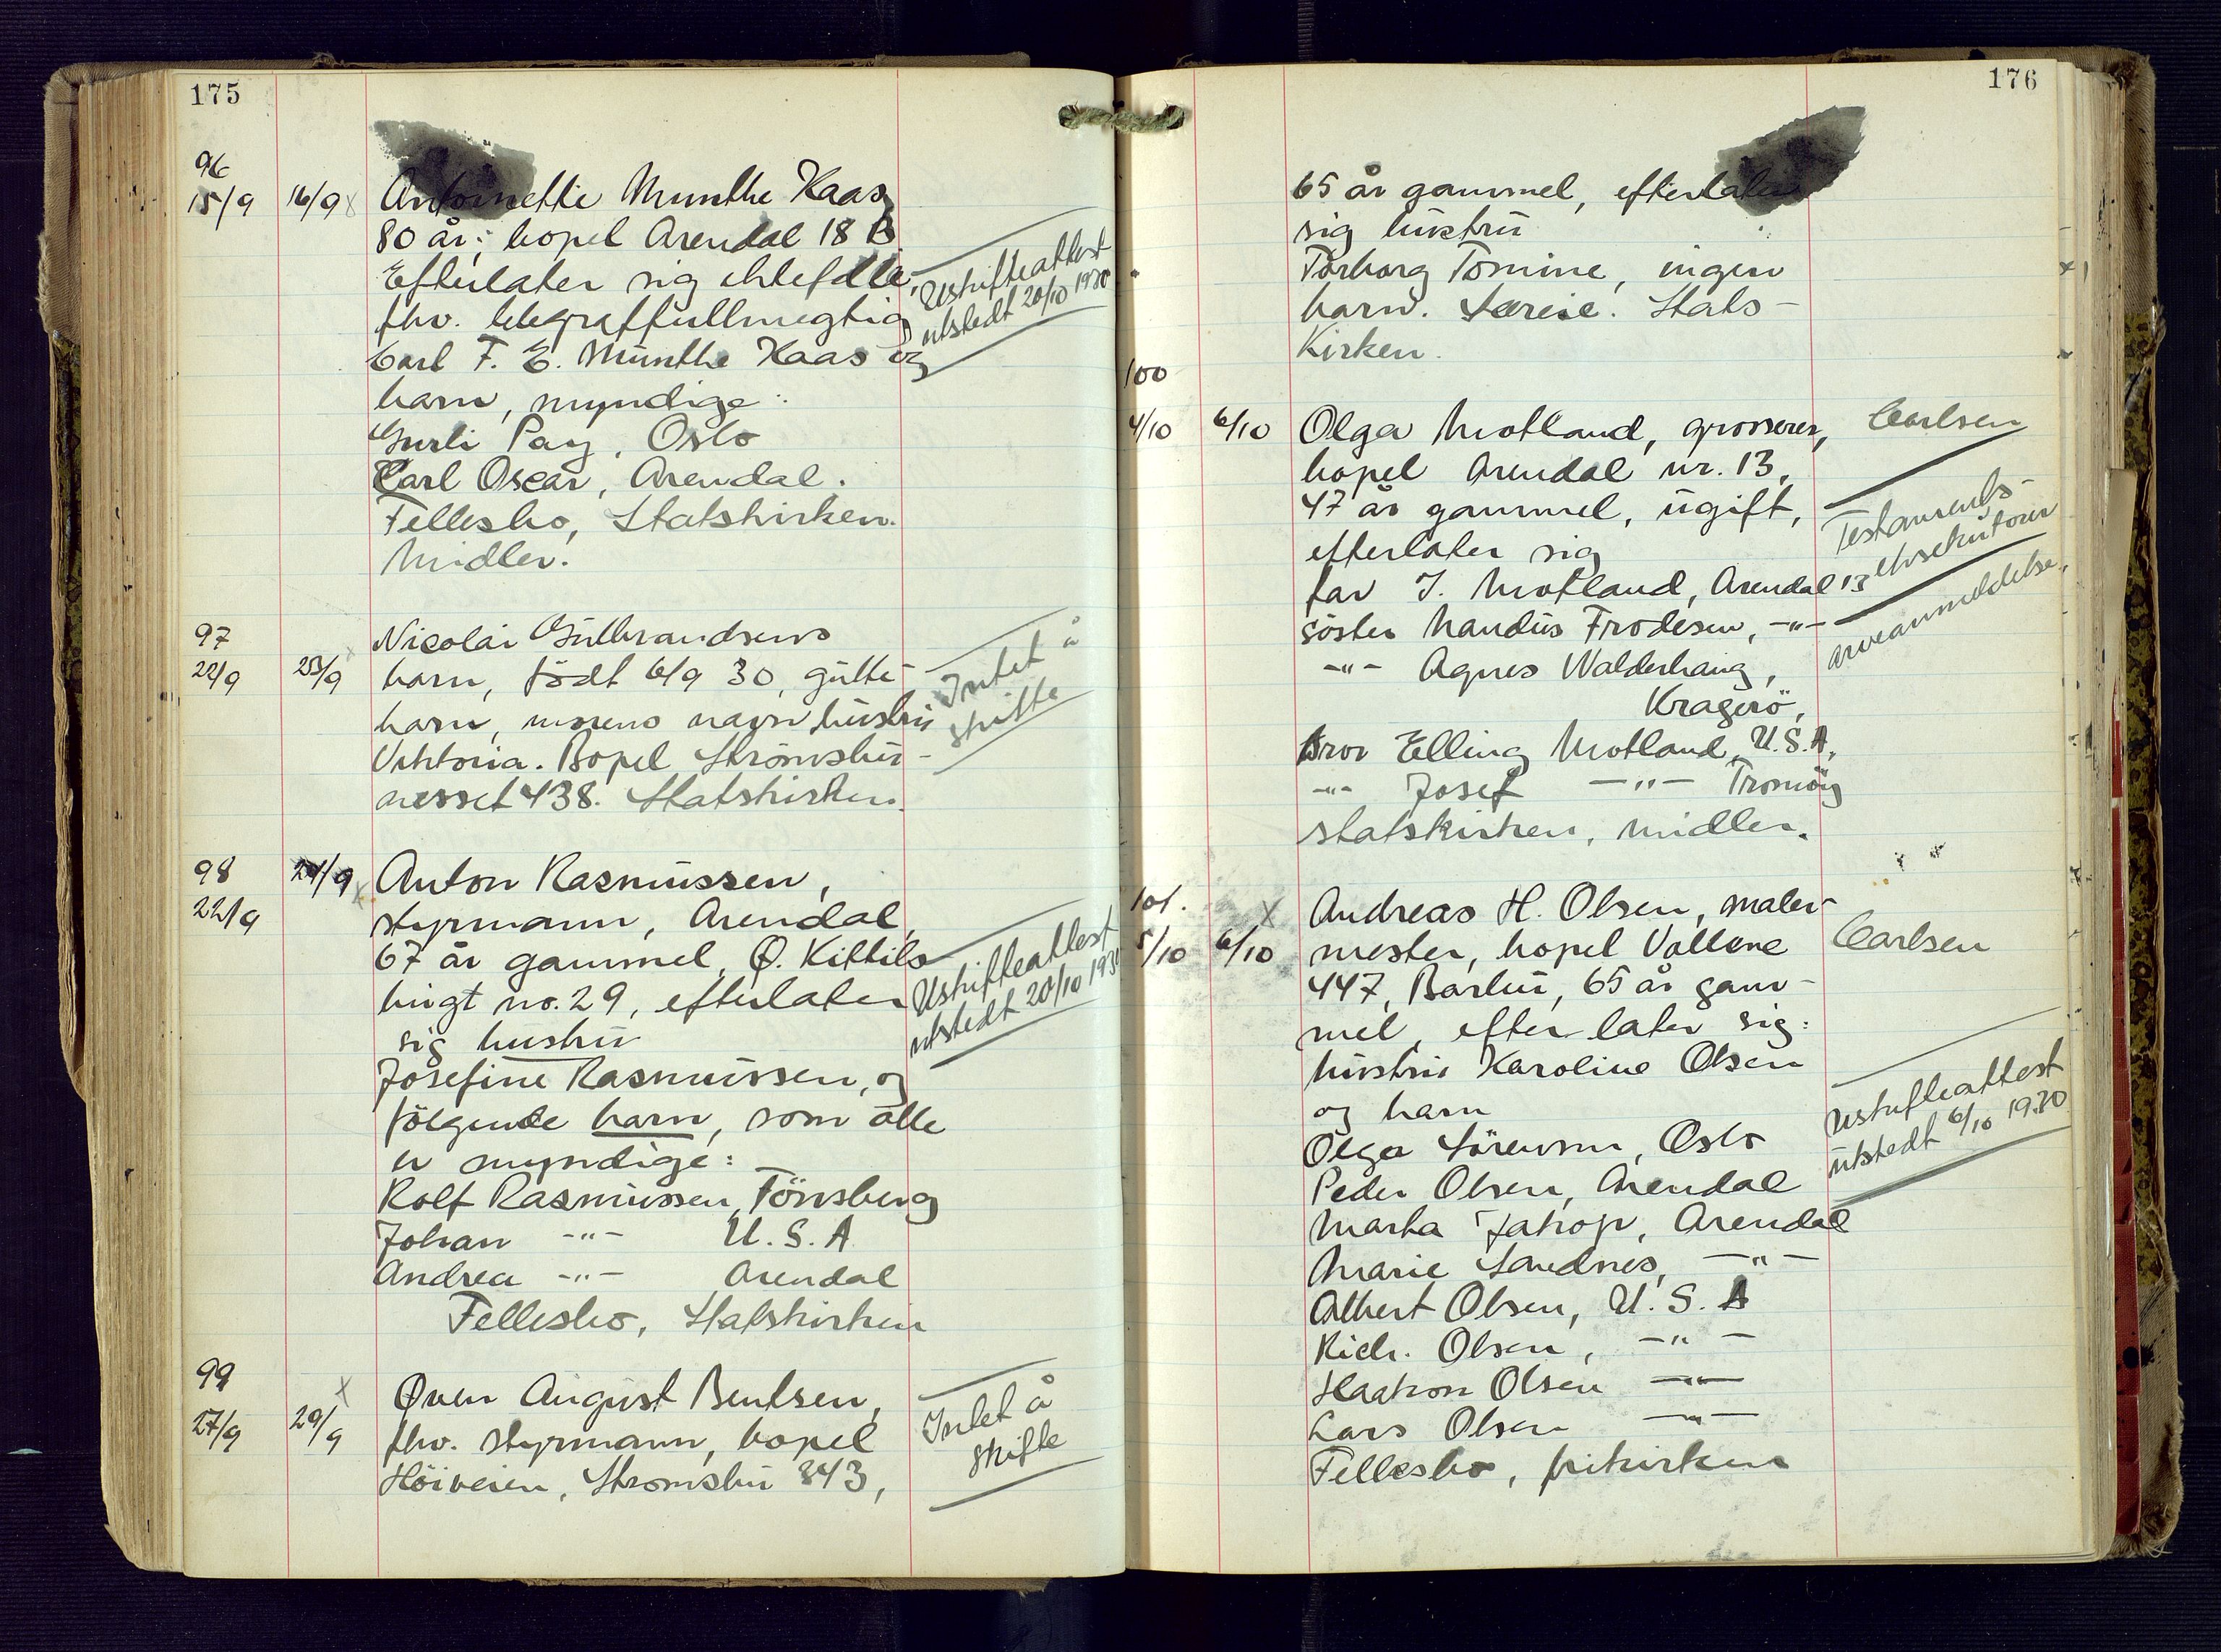 175
96
15/9 16/9 x Antoinette Munthe Kaas
80 år, bopel Arendal 18 B
Efterlater sig ektefelle,
fhv. telegraffullmegtig
Carl F. E. Munthe Kaas og
barn, myndige:
Gurli Pay, Oslo
Carl Oscar, Arendal.
Fellesbo, Statskirken.
Midler.
Uskifteattest
utstedt 20/10 1930
97
22/9 23/9 x Nicolai Gulbrandsens
barn, født 6/9 30, gutte-
barn, morens navn hustru
Viktoria. Bopel Strømsbu-
nesset 438. Statskirken.
Intet å
skifte
98
22/9 24/9 x Anton Rasmussen,
styrmann, Arendal,
67 år gammel, Ø. Kittils
bugt no. 29, efterlater
sig hustru
Josefine Rasmussen, og
følgende barn, som alle
er myndige:
Rolf Rasmussen, Tönsberg
Johan -"- U.S.A
Andrea -"- Arendal
Fellesbo, Statskirken
Uskifteattest
utstedt 20/10 1930
99
27/9 29/9 x Oven August Bentsen,
fhv. styrmann, bopel
Höiveien, Strømsbu 343,
Intet å
skifte
176
65 år gammel, efterlater
sig hustru
Torborg Tomine, ingen
barn. Særeie. Stats-
Kirken.
100
4/10 6/10 Olga Motland, grosserer,
bopel Arendal nr. 13,
47 år gammel, ugift,
efterlater sig
far J. Motland, Arendal 13
søster Nandus Frodesen, -"-
-"- Agnes Walderhaug,
Kragerö,
Bror Elling Motland, U.S.A.
-"- Josef -"- Tromöy
statskirken, midler.
Carlsen
Testaments-
eksekutorer
arveanmeldelse,
101.
5/10 6/10 x Andreas H. Olsen, maler-
mester, bopel Vollene
447, Barbu, 65 år gam-
mel, efterlater sig:
hustru Karoline Olsen
og barn
Olga Sörensen, Oslo
Peder Olsen, Arendal
Marta, Arendal
Marie Sandnes, -"-
Albert Olsen, U.S.A
Rich. Olsen, -"-
Haakon Olsen -"-
Lars Olsen -"-
Fellesbo, frikirken
Carlsen
Uskifteattest
utstedt 6/10 1930